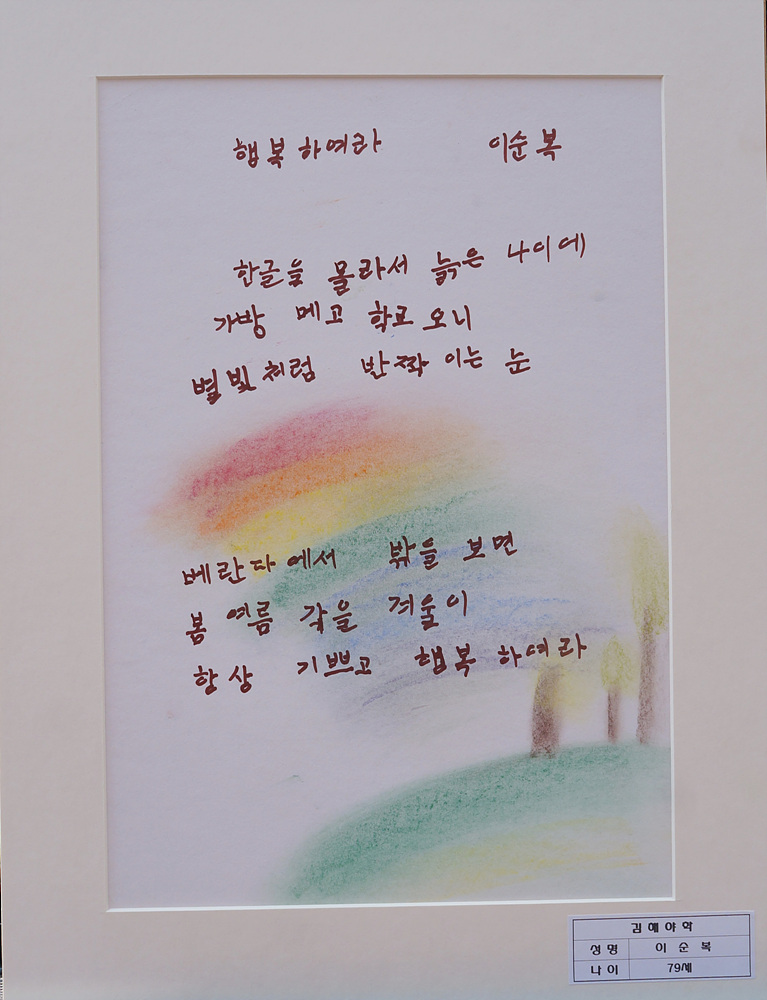 행복하여라 이순복
한글을 몰라서 늙은 나이에
가방 메고 학교 오니
별빛처럼 반짝이는 눈
베란다에서 밖을 보면
봄 여름 각을 겨울이
항상 기쁘고 행복하여라
김해야학
성명 이순복
나이 79세